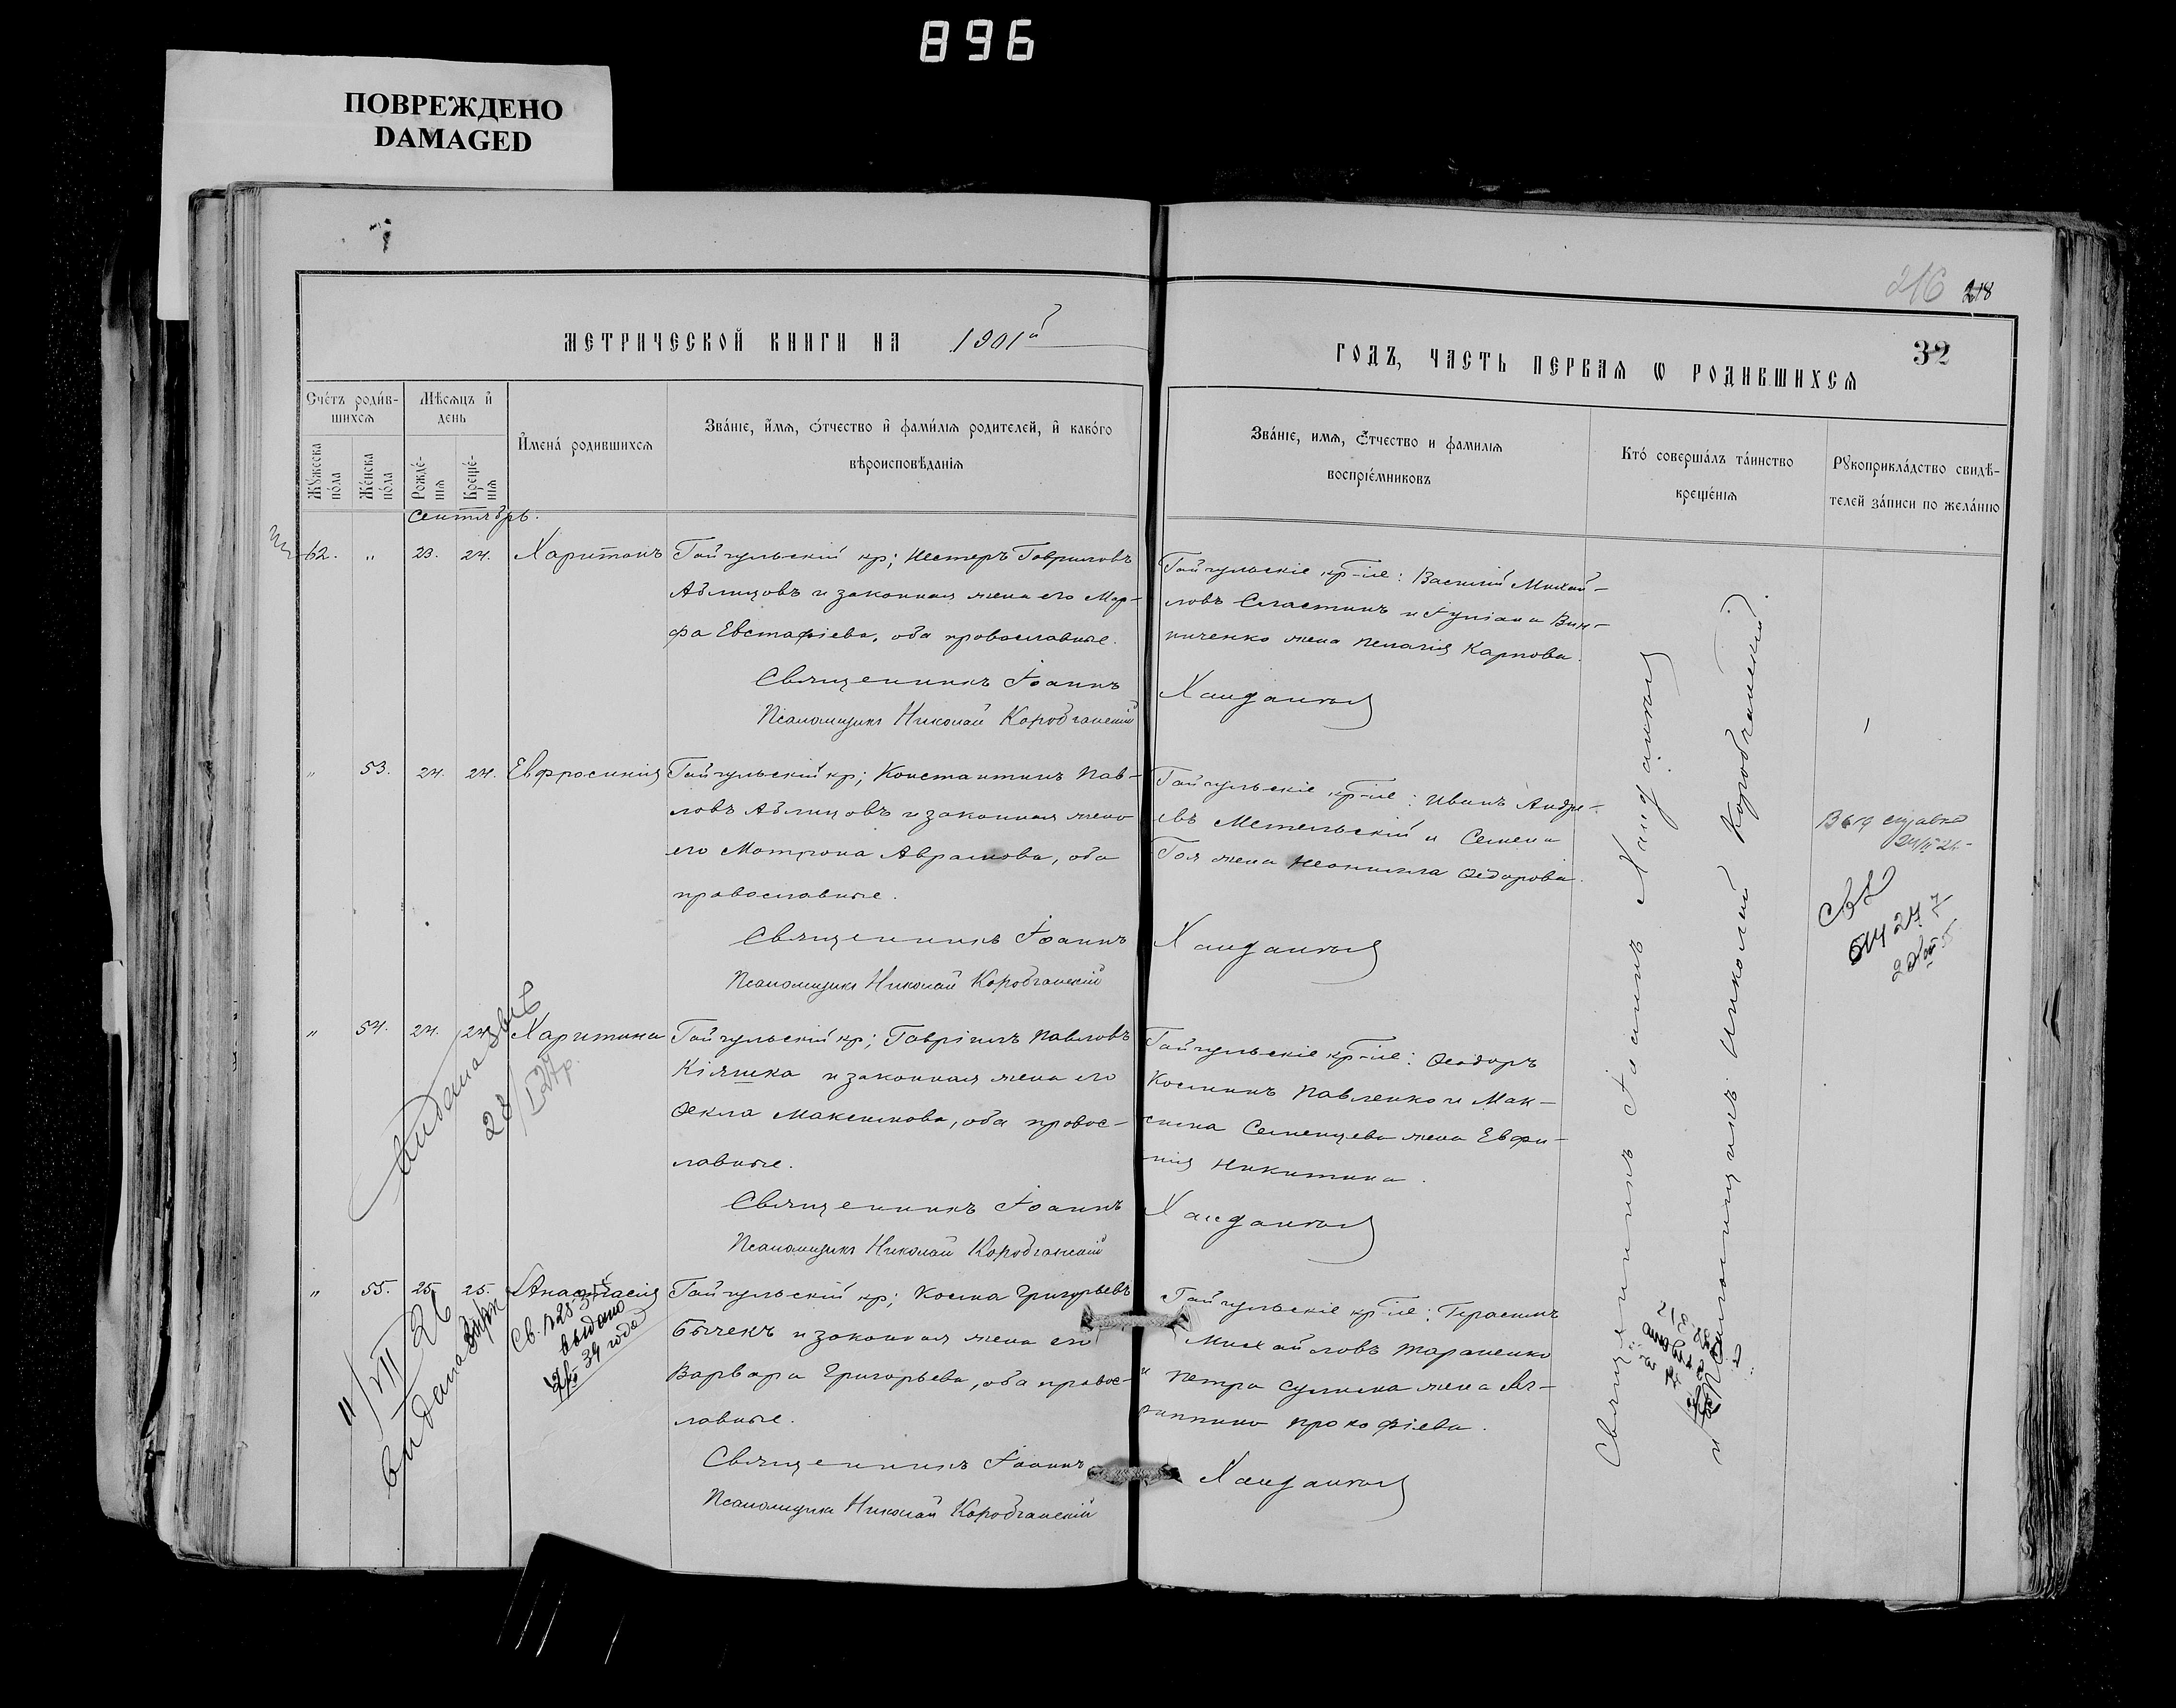 896
ПОВРЕЖДЕНО
DAMAGED
216 218
32
МЕТРИЧЕСКОЙ КНИГИ НА 1901й
ГОДЪ, ЧАСТЬ ПЕРВАЯ Ѡ РОДИВШИХСЯ
Счетъ родив-
шихся
Мѣсяцъ и
день
Мужеска
пола
Женска
пола
Рожде-
нія
Креще-
нія
Имена родившихся
Званіе, имя, отчество и фамилія родителей, и какого
вѣроисповѣданія
Званіе, имя, отчество и фамилія
воспріемниковъ
Кто совершалъ таинство
крещенія
Рукоприкладство свидѣ-
телей записи по желанію
Сентябрь.
62. " 23. 24. Харитонъ
Гайчульскій кр; Несторъ Гавриловъ
Аблицовъ и законная жена его Мар-
фа Евстафіева, оба православные.
Священникъ Іоаннъ
Псаломщикъ Николай Коробчанскій
Гайчульскіе кр-не: Василій Михай-
ловъ Сластинъ и Іуліана Вин-
ниченко жена Пелагія Карпова.
" 53. 24. 24. Евфросинія
Гайчульскій кр; Константинъ Пав-
ловъ Аблицовъ и законная жена
его Матрона Аврамова, оба
православные.
Священникъ Іоаннъ
Псаломщикъ Николай Коробчанскій
Гайчульскіе кр-не: Иванъ Андре-
евъ Метельскій и Семена
Гоя жена Неонилла Ѳедорова.
" 54. 24. 24. Харитина
Гайчульскій кр; Гавріилъ Павловъ
Кіяшка и законная жена его
Ѳекла Максимова, оба правос-
лавные.
Священникъ Іоаннъ
Псаломщикъ Николай Коробчанскій
Гайчульскіе кр-не: Ѳеодоръ
Косминъ Павленко и Мак-
сима Семенцева жена Евфи-
мія Никитина.
" 55. 25. 25. Анастасія
Гайчульскій кр; Косма Григорьевъ
Бычекъ и законная жена его
Варвара Григорьева, оба правос-
лавные.
Священникъ Іоаннъ
Псаломщикъ Николай Коробчанскій
Гайчульскіе кр-не: Герасимъ
Михайловъ Тараненко
и Петра Сулима жена Аг-
риппина Прокофіева.
Священникъ Іоаннъ
и Псаломщикъ Николай Коробчанскій.
11/VII 26
видана
выдано
34 года